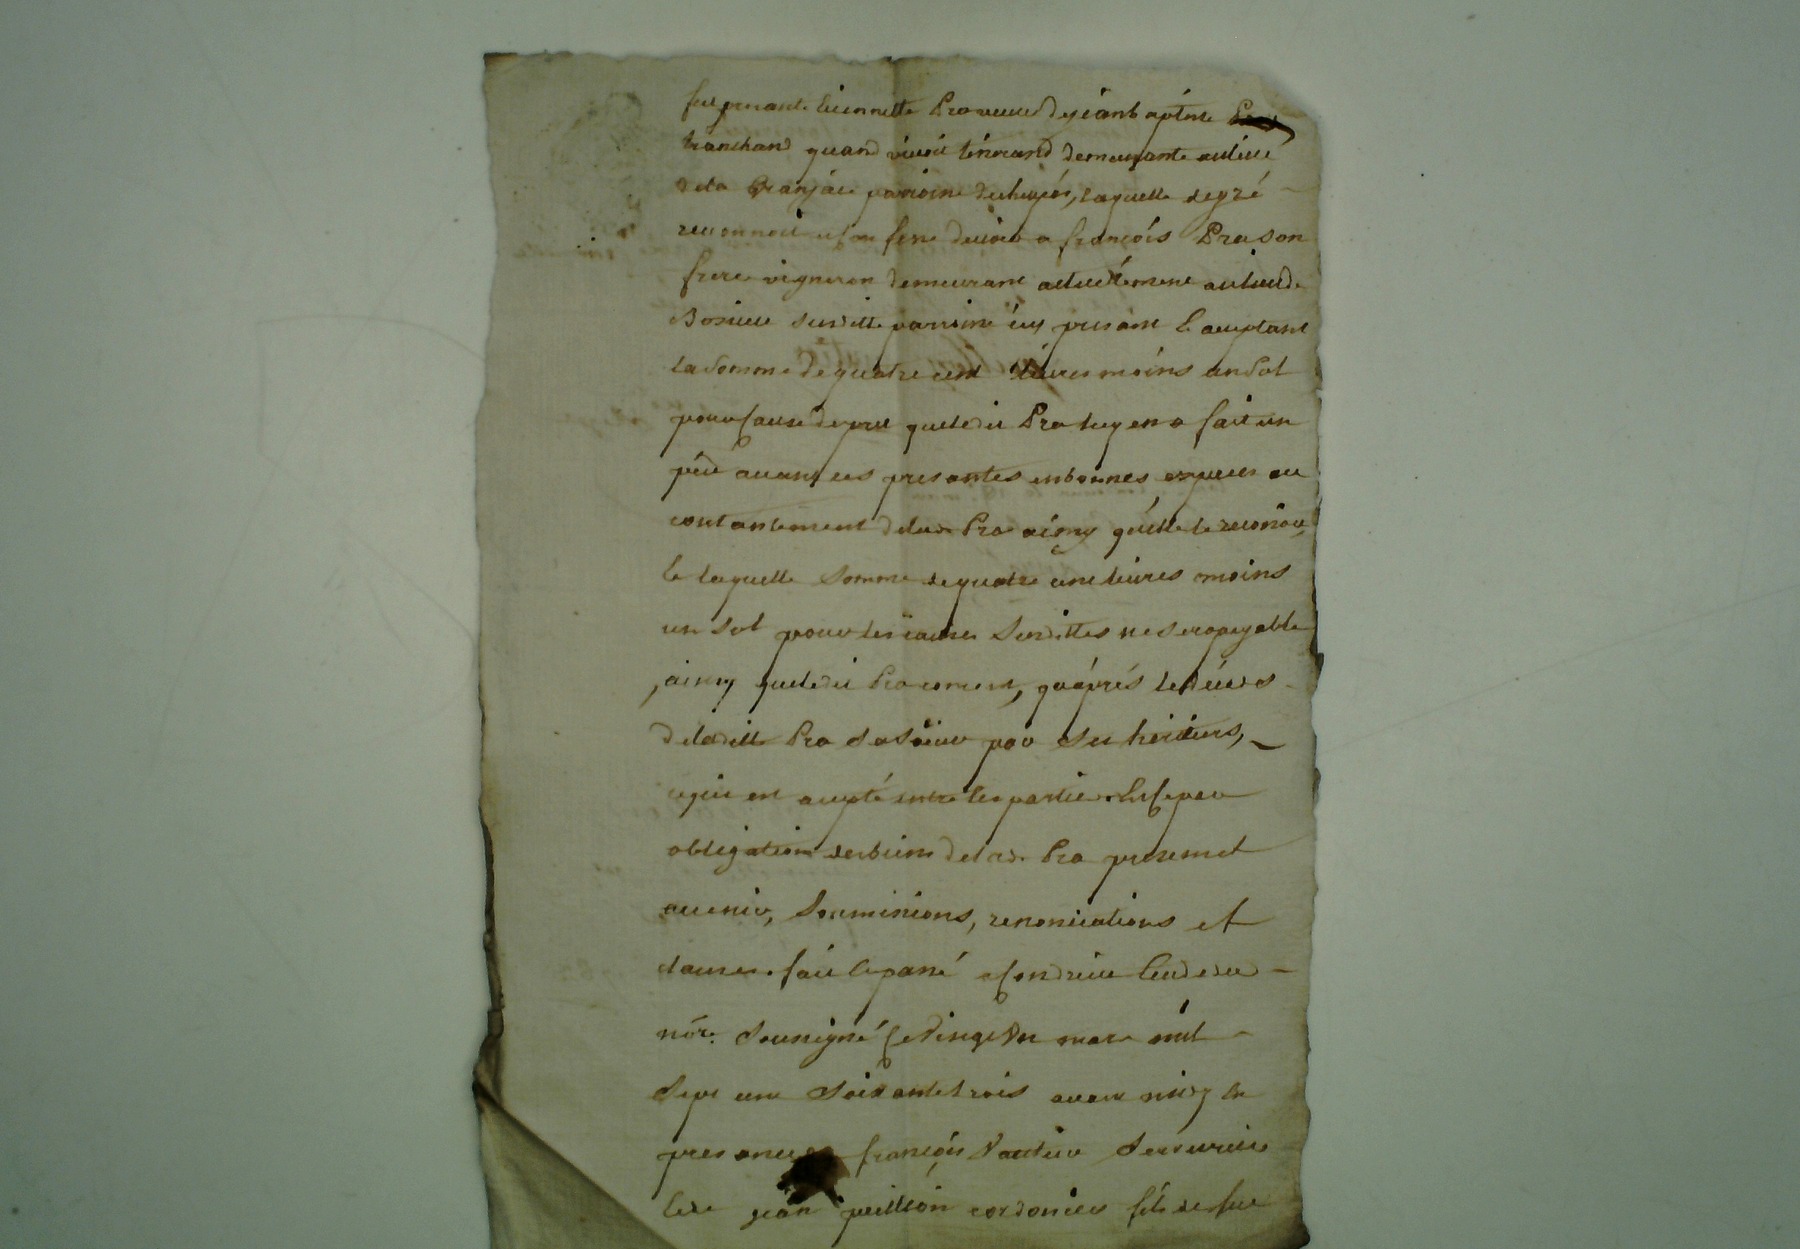 fut presante Etiennette Pra veuve de jéanbaptiste
tranchand quand vivoit tisserand demeurante au lieu
de la Granjac parroisse de, laquelle de gré
reconnoit et confesse devoir a françois Pra son
frere vigneron demeurant actuelement au lieu de
susditte parroisse icy present et acceptant
la somme de quatre cent livres moins un sol
pour cause de pret que ledit Pra luy en a fait un
peu avant ces presantes en bonnes especes au
contantement de lad. Pra ainsy qu'elle le reconnoit,
et laquelle somme de quatre cent livres moins
un sol pour les causes susdittes ne sera payable
ainsy que ledit Pra consent, qu'aprés le déces
de laditte Pra sa sœur par ses héritiers,
ce qui est accepté entre les parties et ce par
obligation des biens de lad. Pra present et
avenir, soumissions, renonciations et
clauses. fait et passé a Condrieu etude du
nore. soussigné ce vingt un mars mil
sept cent soixante trois avant midy en
presence de françois serrurier
et de jean cordonier fils de feu